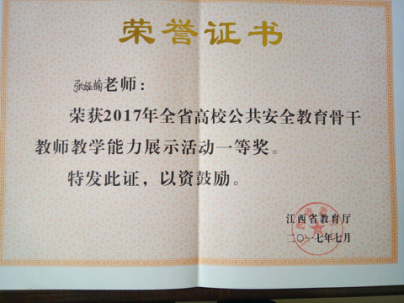 荣誉证书
张姬楠老师：
荣获2017年全省高校公共安全教育骨干
教师教学能力展示活动一等奖。
特发此证，以资鼓励。
江西省教育厅
二〇一七年七月